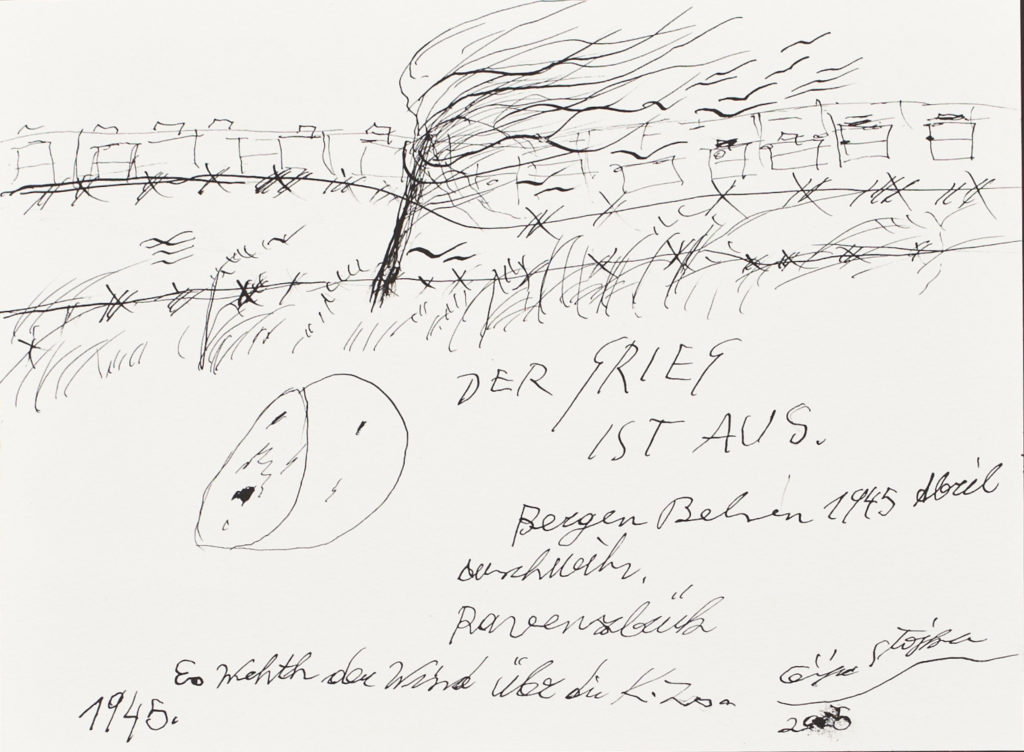 DER GRIEG
IST AUS.
Bergen Belsen 1945 Abril
auschwihz.
Ravensbük
Es Wehth der Wind über die K.Zss
1945.
Stojka